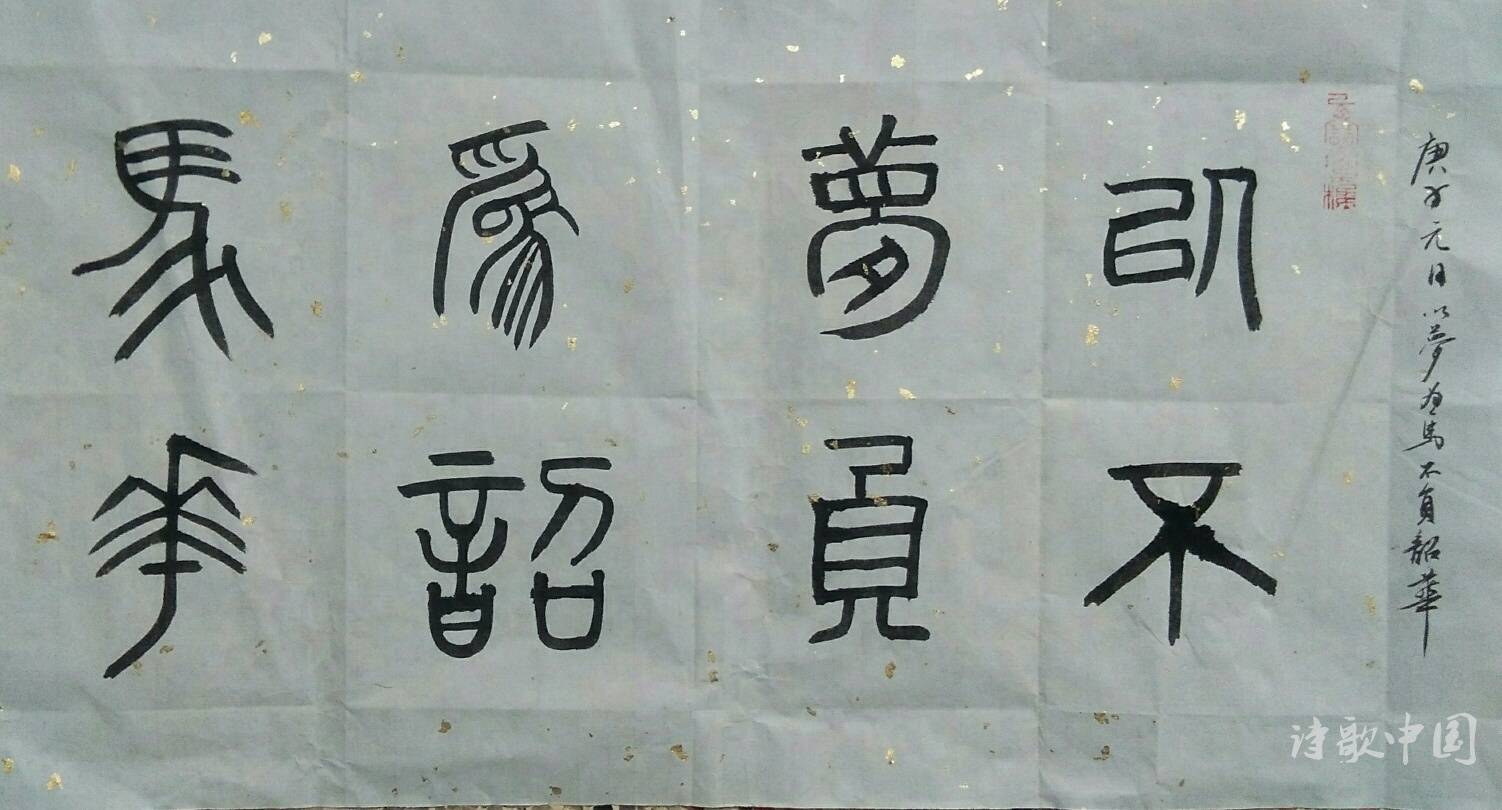 以夢爲馬
不負韶華
庚子元日以夢為馬不負韶華
诗歌中国